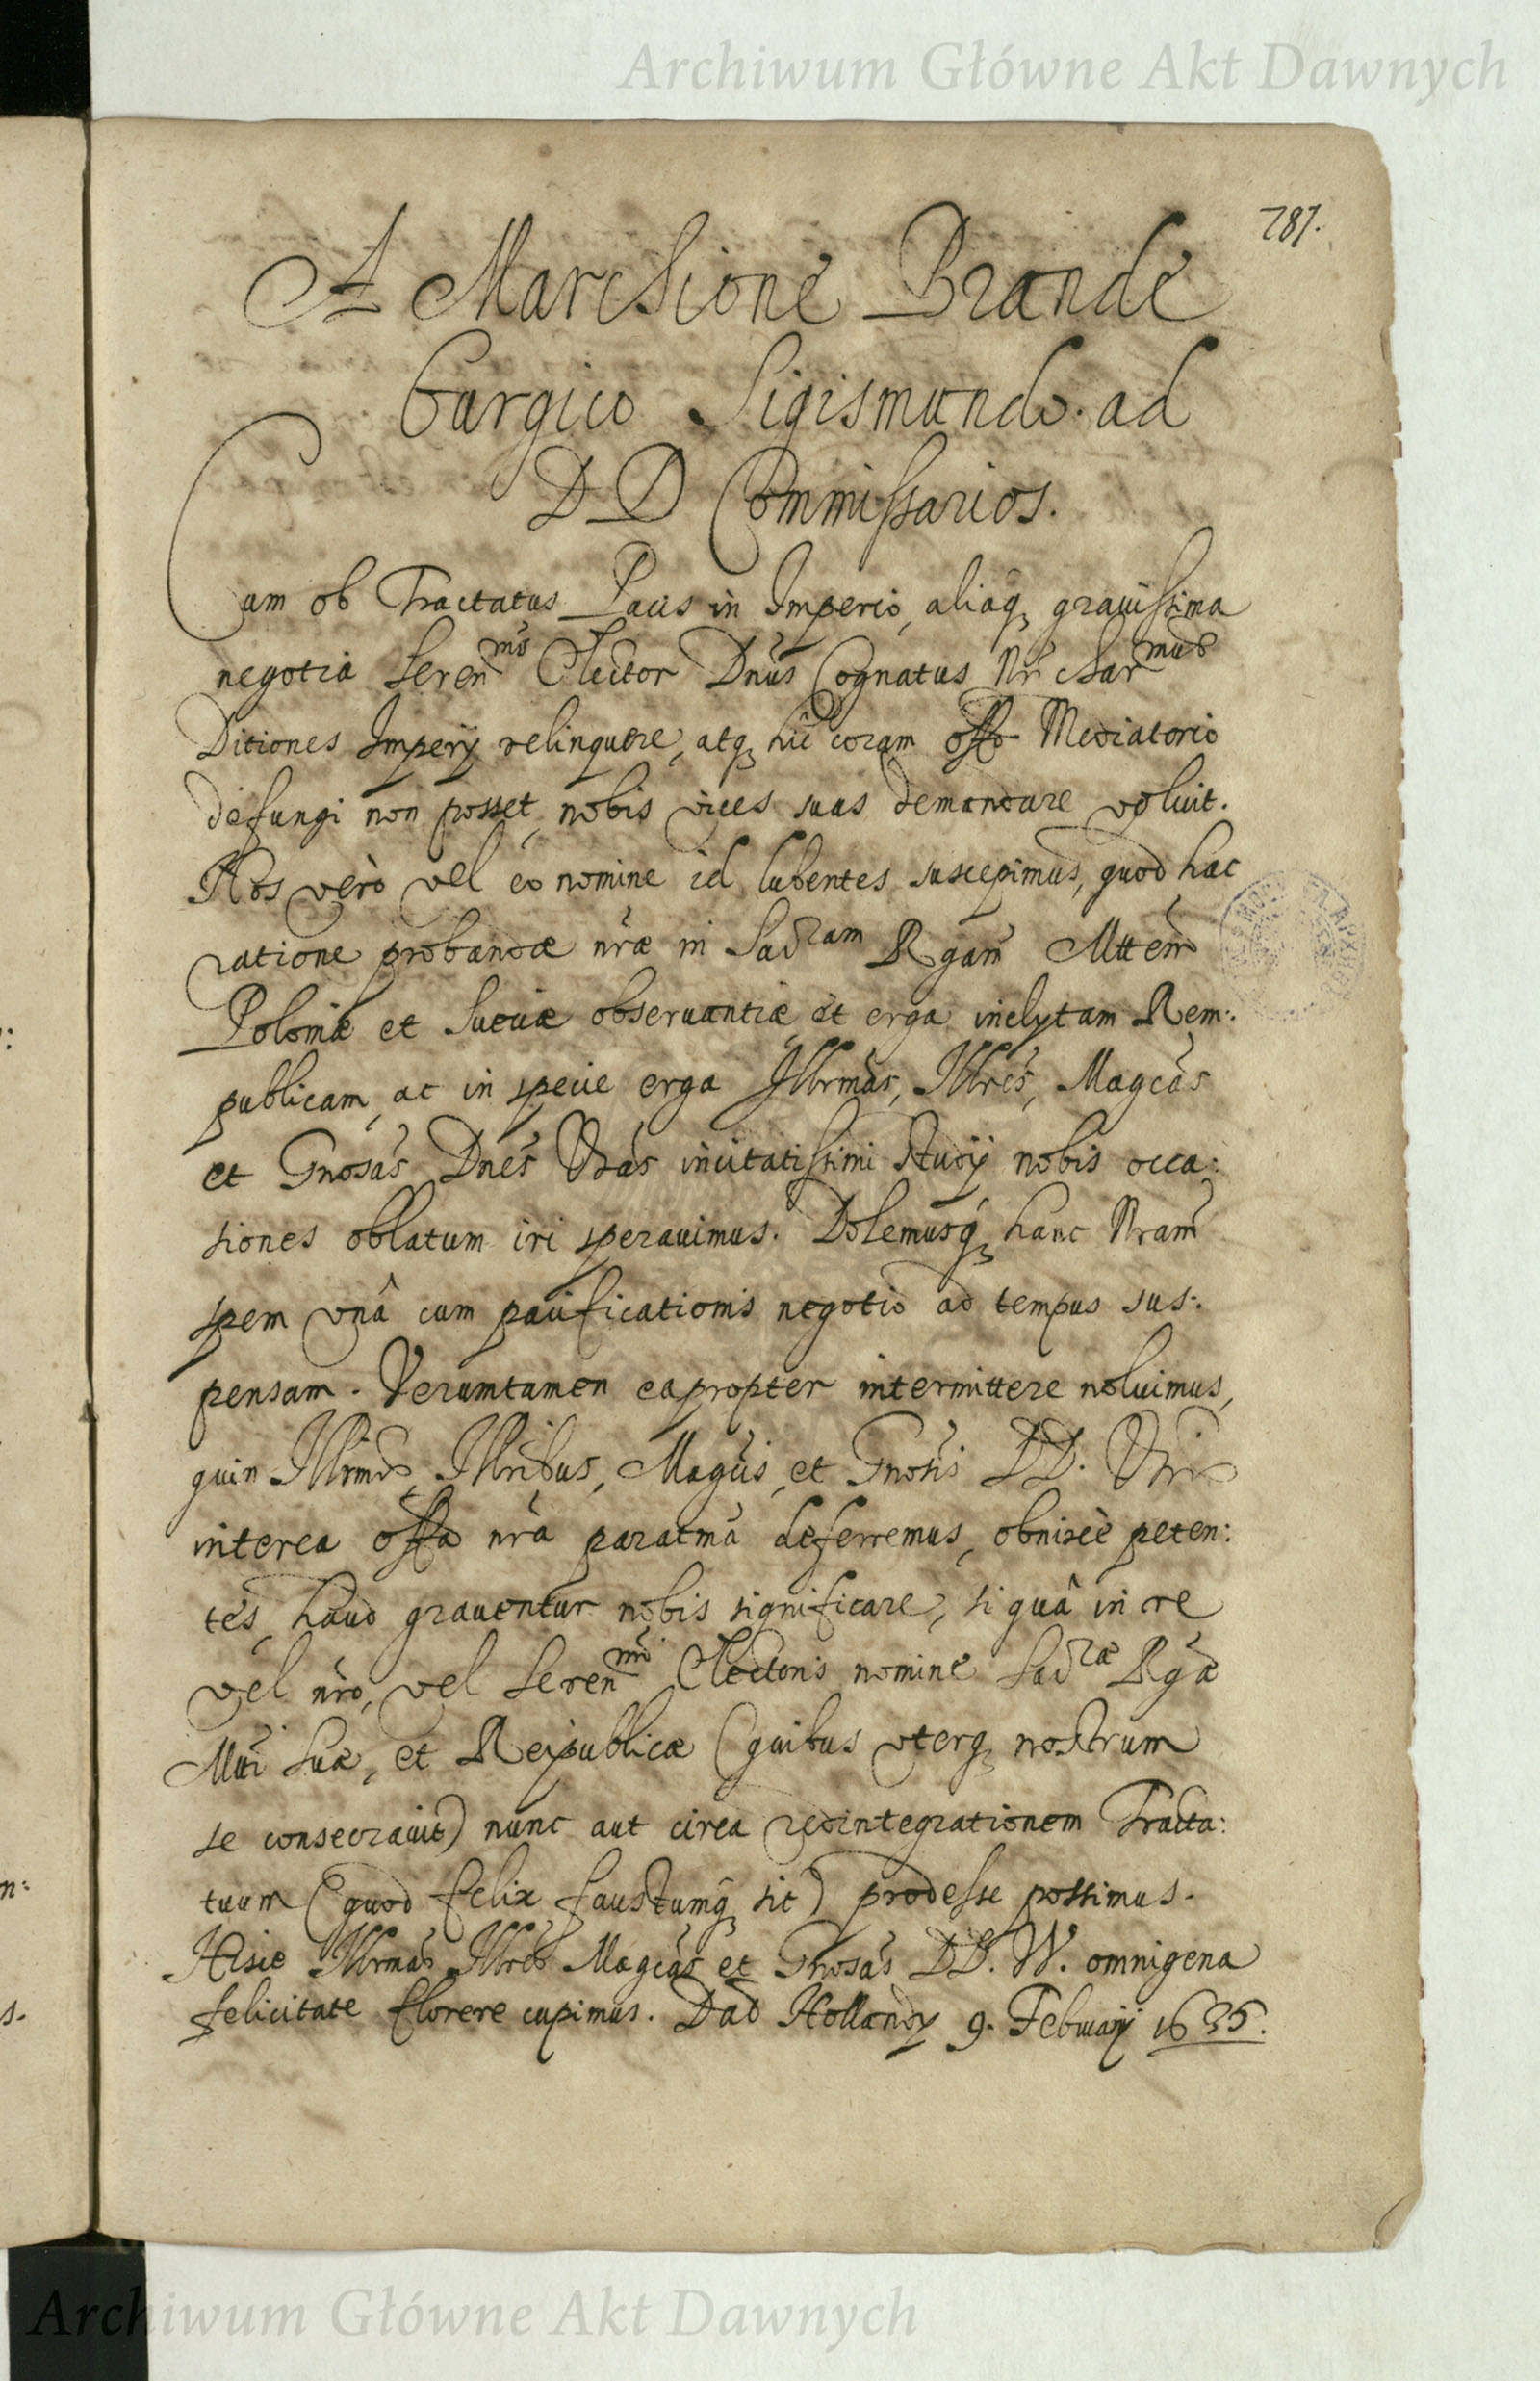 Archiwum Główne Akt Dawnych
787.
A Marchione Brande
burgico Sigismundo. ad
DD Commissarios.
Cum ob Tractatus Pacis in Imperio, aliaq gravissima
negotia Seren̄mus Elector Dnūs Cognatus Nr̄ charmus
Ditiones Imperij relinquere, atq hic coram offo Mediatorio
defungi non posset, nobis vices suas demandare voluit.
Nos verò vel eo nomine id lubentes suscepimus, quod hac
ratione probandæ nr̄æ in Sacram Rgam̄ Mttem̄
Poloniæ et Sueciæ observantiæ et erga inclytam Rem:
publicam, ac in specie erga Illrmas, Illres, Magcas
et Gnosas Dnes Vras incitatissimi studij nobis occa:
siones oblatum iri speravimus. Dolemusq hanc Nram̄
spem vnâ cum pacificationis negotio ad tempus sus:
pensam. Verumtamen eapropter intermittere noluimus,
quin Illrmis, Illribus, Magcis, et Gnosis DD. Vris
interea offa nr̄a paratma deferremus, obnixè peten:
tes, haud graventur nobis significare, si quâ in re
vel nr̄o, vel Seren̄mi Electoris nomine Sacræ Rgæ
Mtti Suæ, et Reipublicæ (quibus vterq nostrum
se consecravit) nunc aut circa redintegrationem Tracta:
tuum (quod felix faustumq sit) prodesse possimus.
Hisce Illrmas Illres Magcas et Gnosas DD. W. omnigena
felicitate florere cupimus. Dab Hollandy 9. Februarij 1635.
Archiwum Główne Akt Dawnych